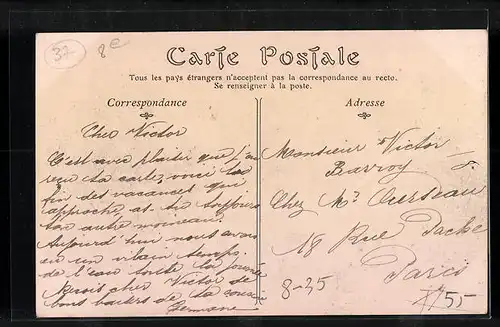 37
8€
Carte Postale
Tous les pays étrangers n'acceptent pas la correspondance au recto.
Se renseigner à la poste.
Correspondance
Cher Victor
C'est avec plaisir que j'ai
reçu ta carte, voici la
fin des vacances qui
approche, as-tu toujours
ton autre
Aujourd'hui nous avons
eu un vilain temps
de l'eau toute la journée
Reçois cher Victor de
bons baisers de ta cousine
Germaine
Adresse
Monsieur Victor
Barroy
Chez Mr
18 Rue Pache
Paris
8-35